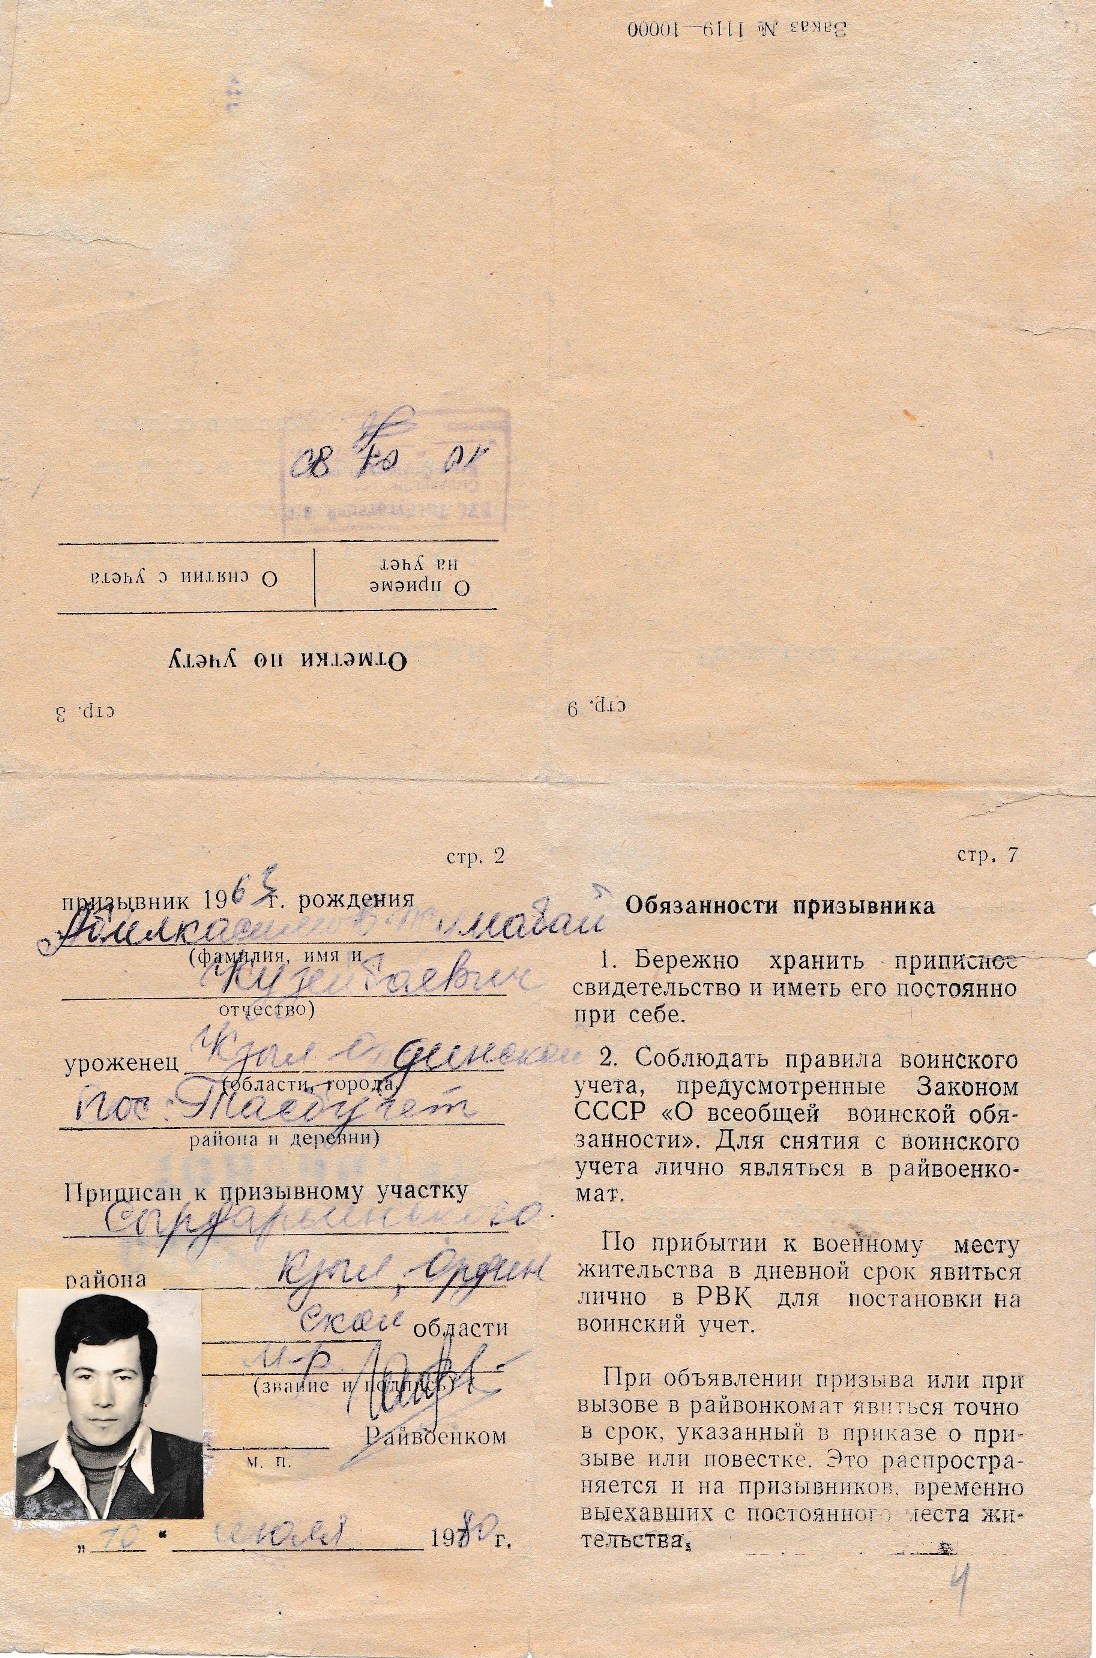 Заказ № 1119—10000
08 07 80
О приеме
на учет
О снятии с учета
Отметки по учету
стр. 3
стр. 6
стр. 2
призывник 1963 г. рождения
(фамилия, имя и
Кузембаевич
отчество)
уроженец Кзыл Ординской
(области, города,
пос. Тасбугет
района и деревни)
Приписан к призывному участку
Сырдарьинского
района Кзыл-Ордин
ской области
м-р
(звание и подпись)
Райвоенком
м. п.
„10“ июля 1980 г.
стр. 7
Обязанности призывника
1. Бережно хранить приписное
свидетельство и иметь его постоянно
при себе.
2. Соблюдать правила воинского
учета, предусмотренные Законом
СССР «О всеобщей воинской обя-
занности». Для снятия с воинского
учета лично являться в райвоенко-
мат.
По прибытии к военному месту
жительства в дневной срок явиться
лично в РВК для постановки на
воинский учет.
При объявлении призыва или при
вызове в райвонкомат явиться точно
в срок, указанный в приказе о при-
зыве или повестке. Это распростра-
няется и на призывников, временно
выехавших с постоянного места жи-
тельства.
4